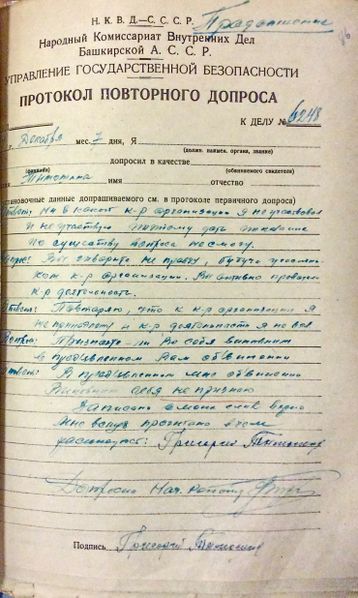 Н. К. В. Д.—С. С. С. Р. Продолжение
Народный Комиссариат Внутренних Дел
Башкирской А. С. С. Р.
УПРАВЛЕНИЕ ГОСУДАРСТВЕННОЙ БЕЗОПАСНОСТИ
ПРОТОКОЛ ПОВТОРНОГО ДОПРОСА
К ДЕЛУ № 6248
Декабря мес. 7 дня, Я
(должн. наимен. органа, звание)
допросил в качестве
(фамилия) (обвиняемого свидетеля)
имя отчество
установочные данные допрашиваемого см. в протоколе первичного допроса)
Ответ: ни в какой к-р организации я не участвовал
и не участвую поэтому дать показание
по существу вопроса не могу.
Вы говорите не правду, будучи
к-р организации. Вы активно проводили
к-р деятельность.
Ответ: Повторяю, что к к-р организации я
не принадлежу и к-р деятельность я не вел
Вопрос: Признаете-ли Вы себя виновным
в предъявленном Вам обвинении
Ответ: В предъявленном мне обвинении
Виновным себя не признаю
Записано с моих слов верно
мне вслух прочитано в чем
расписуюсь: Григорий
Допросил Нач.
Подпись Григорий